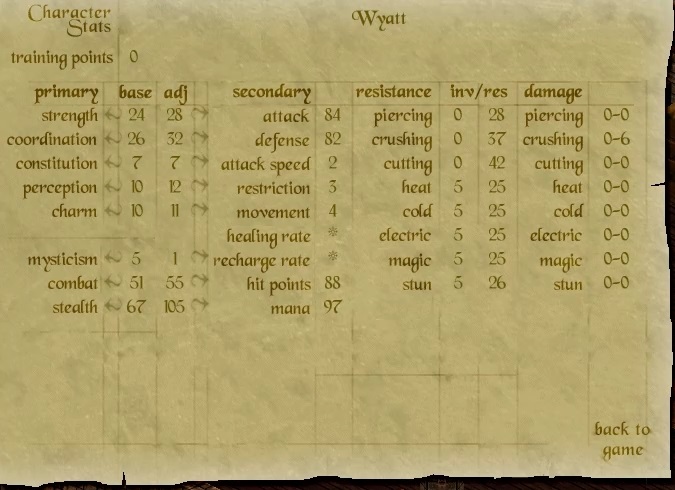 Character Stats
Wyatt
training points 0
primary base adj secondary resistance inv/res damage
strength 24 28 attack 84 piercing 0 28 piercing 0-0
coordination 26 32 defense 82 crushing 0 37 crushing 0-6
constitution 7 7 attack speed 2 cutting 0 42 cutting 0-0
perception 10 12 restriction 3 heat 5 25 heat 0-0
charm 10 11 movement 4 cold 5 25 cold 0-0
healing rate * electric 5 25 electric 0-0
mysticism 5 1 recharge rate * magic 5 25 magic 0-0
combat 51 55 hit points 88 stun 5 26 stun 0-0
stealth 67 105 mana 97
back to
game